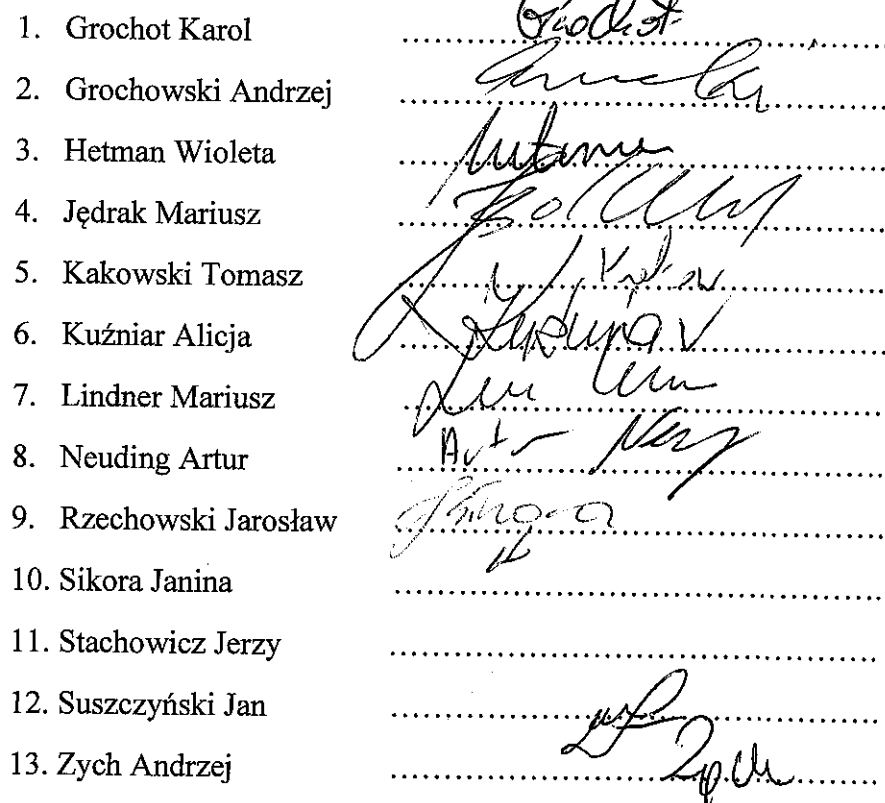 1. Grochot Karol ........ Grochot
2. Grochowski Andrzej ........
3. Hetman Wioleta ........
4. Jędrak Mariusz ........
5. Kakowski Tomasz ........
6. Kuźniar Alicja ........ Kuźniar
7. Lindner Mariusz ........
8. Neuding Artur ........ Artur
9. Rzechowski Jarosław ........ Sikora
10. Sikora Janina ........
11. Stachowicz Jerzy ........
12. Suszczyński Jan ........
13. Zych Andrzej ........ Zych